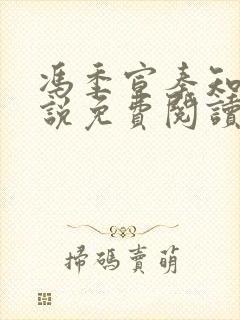 馮季宣秦知
說免費閱讀
掃碼賣萌